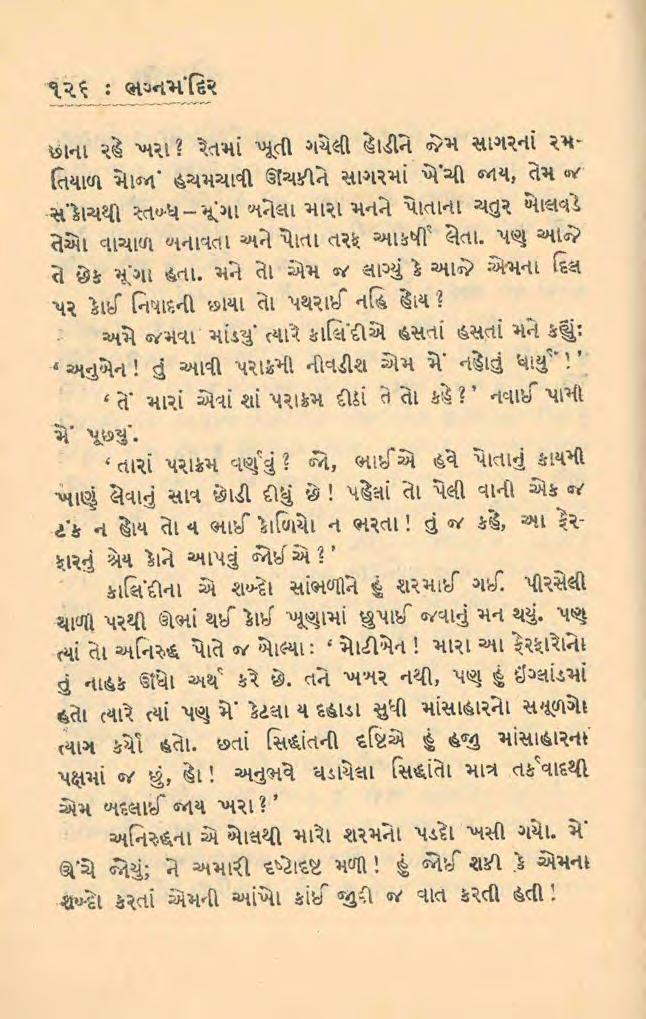 ૧૨૬ : ભગ્નમંદિર
છાના રહે ખરા? રેતમાં ખૂતી ગયેલી હોડીને જેમ સાગરનાં રમ-
તિયાળ મોજાં હચમચાવી ઊંચકીને સાગરમાં ખેંચી જાય, તેમ જ
સંકોચથી સ્તબ્ધ–મૂંગા બનેલા મારા મનને પોતાના ચતુર બોલવડે
તેઓ વાચાળ બનાવતા અને પોતા તરફ આકર્ષી લેતા. પણ આજે
તે છેક મૂંગા હતા. મને તો એમ જ લાગ્યું કે આજે એમના દિલ
પર કોઈ નિષાદની છાયા તો પથરાઈ નહિ હોય?
અમે જમવા માંડ્યું ત્યારે કાલિંદીએ હસતાં હસતાં મને કહ્યું:
‘અનુબેન! તું આવી પરાક્રમી નીવડીશ એમ મેં નહોતું ધાર્યું!’
‘તેં મારાં એવાં શાં પરાક્રમ દીઠાં તે તો કહે?’ નવાઈ પામી
મેં પૂછ્યું.
‘તારાં પરાક્રમ વર્ણવું? જો, ભાઈએ હવે પોતાનું કાયમી
ખાણું લેવાનું સાવ છોડી દીધું છે! પહેલાં તો પેલી વાની એક જ
ટંક ન હોય તો ય ભાઈ કોળિયો ન ભરતા! તું જ કહે, આ ફેર-
ફારનું શ્રેય કોને આપવું જોઈએ?’
કાલિંદીના એ શબ્દો સાંભળીને હું શરમાઈ ગઈ. પીરસેલી
થાળી પરથી ઊભાં થઈ કોઈ ખૂણામાં છુપાઈ જવાનું મન થયું. પણ
ત્યાં તો અનિરુદ્ધ પોતે જ બોલ્યા: ‘મોટીબેન! મારા આ ફેરફારોનો
તું નાહક ઊંધો અર્થ કરે છે. તને ખબર નથી, પણ હું ઇંગ્લાંડમાં
હતો ત્યારે ત્યાં પણ મેં કેટલા ય દહાડા સુધી માંસાહારનો સમૂળગો
ત્યાગ કર્યો હતો. છતાં સિદ્ધાંતની દૃષ્ટિએ હું હજુ માંસાહારના
પક્ષમાં જ છું, હો! અનુભવે ઘડાયેલા સિદ્ધાંતો માત્ર તર્કવાદથી
એમ બદલાઈ જાય ખરા?’
અનિરુદ્ધના એ બોલથી મારો શરમનો પડદો ખસી ગયો. મેં
ઊંચે જોયું; ને અમારી દષ્ટોદષ્ટ મળી! હું જોઈ શકી કે એમના
શબ્દો કરતાં એમની આંખો કાંઈ જુદી જ વાત કરતી હતી!